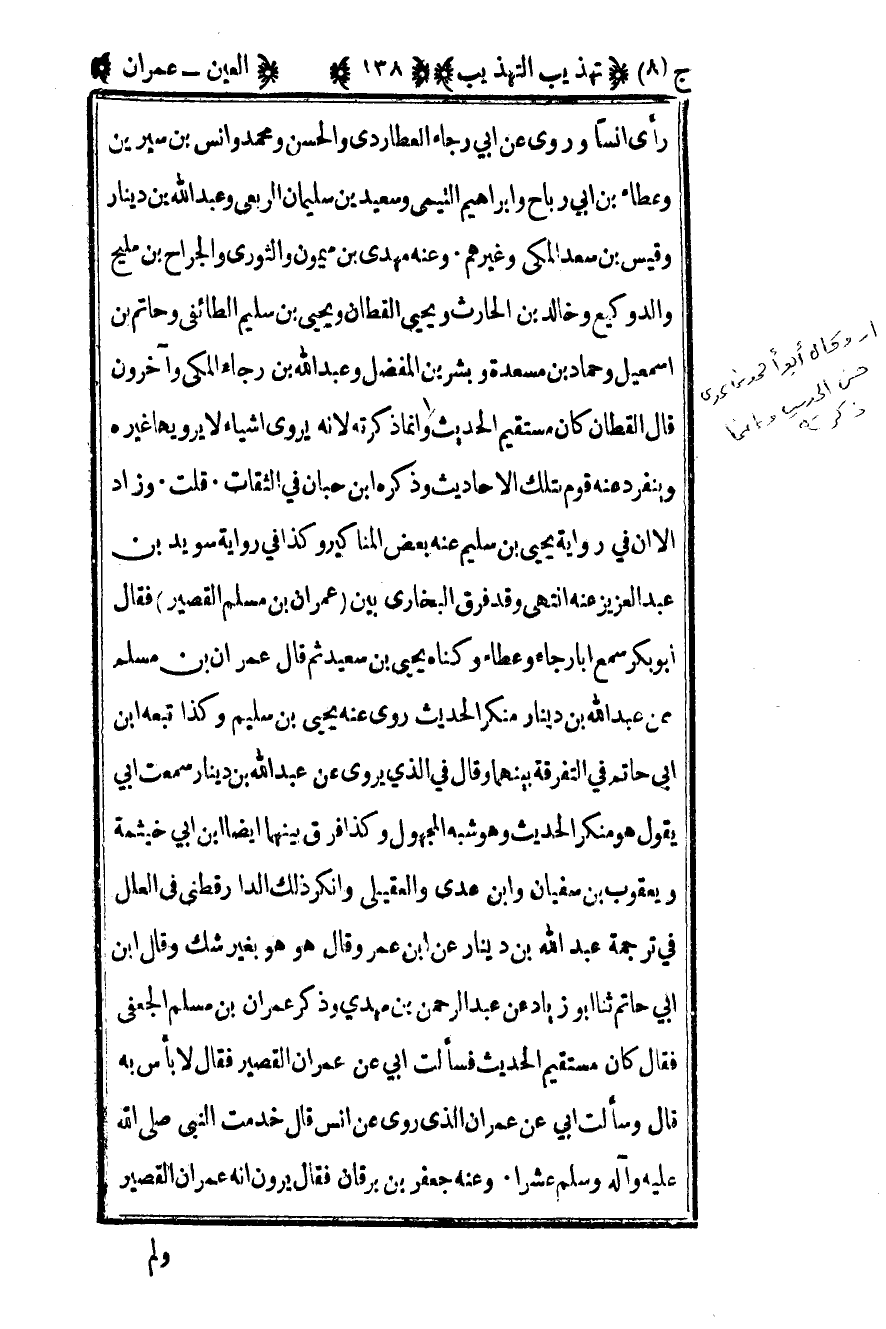 ج (٨) تهذيب التهذيب ١٣٨ العين - عمران
رأى انسا وروى عن ابي رجاء العطاردى والحسن ومحمد وانس بن سيرين
وعطاء بن ابي رباح وابراهيم التيمى وسعيد بن سليمان الربعى وعبدالله بن دينار
وقيس بن سعد المكى وغيرهم · وعنه مهدى بن ميمون والثورى والجراح بن مليح
والد وكيع وخالد بن الحارث ويحيى القطان ويحيى بن سليم الطائفى وحاتم بن
اسمعيل وحماد بن مسعدة وبشر بن المفضل وعبدالله بن رجاء المكى وآخرون
قال القطان كان مستقيم الحديث وانما ذكرته لانه يروى اشياء لا يرويها غيره
وينفرد عنه قوم بتلك الاحاديث وذكره ابن حبان في الثقات · قلت · وزاد
الاان في رواية يحيى بن سليم عنه بعض المناكير وكذا في رواية سويد بن
عبدالعزيز عنه انتهى وقد فرق البخارى بين (عمران بن مسلم القصير) فقال
ابو بكر سمع ابا رجاء وعطاء وكناه يحيى بن سعيد ثم قال عمران بن مسلم
عن عبدالله بن دينار منكر الحديث روى عنه يحيى بن سليم وكذا تبعه ابن
ابى حاتم في التفرقة بينهما وقال في الذي يروى عن عبدالله بن دينار سمعت ابي
يقول هو منكر الحديث وهو شبه المجهول وكذا فرق بينهما ايضا ابن ابي خيثمة
ويعقوب بن سفيان وابن عدى والعقيلى وانكر ذلك الدارقطنى فى العلل
في ترجمة عبد الله بن دينار عن ابن عمر وقال هو هو بغير شك وقال ابن
ابي حاتم ثنا ابو زياد عن عبدالرحمن بن مهدي وذكر عمران بن مسلم الجعفى
فقال كان مستقيم الحديث فسألت ابي عن عمران القصير فقال لا بأس به
قال وسألت ابي عن عمران الذى روى عن انس قال خدمت النبي صلى الله
عليه وآله وسلم عشرا · وعنه جعفر بن برقان فقال يرون انه عمران القصير
ولم
حسن الحديث وانما
ذكرته